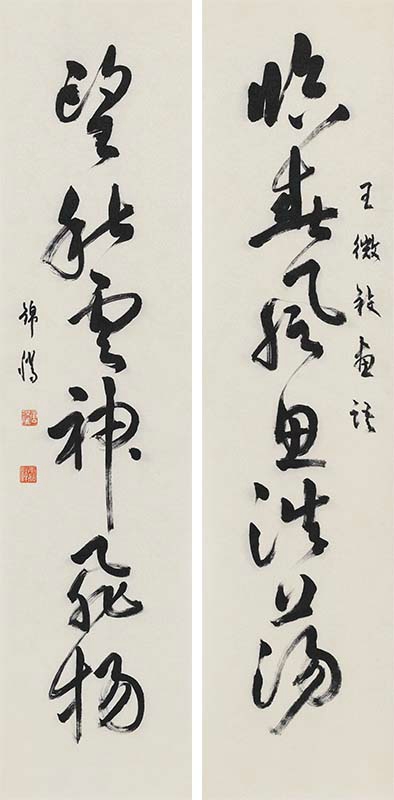 王微敘畫語
臨春風思浩蕩
望秋雲神飛揚
錦